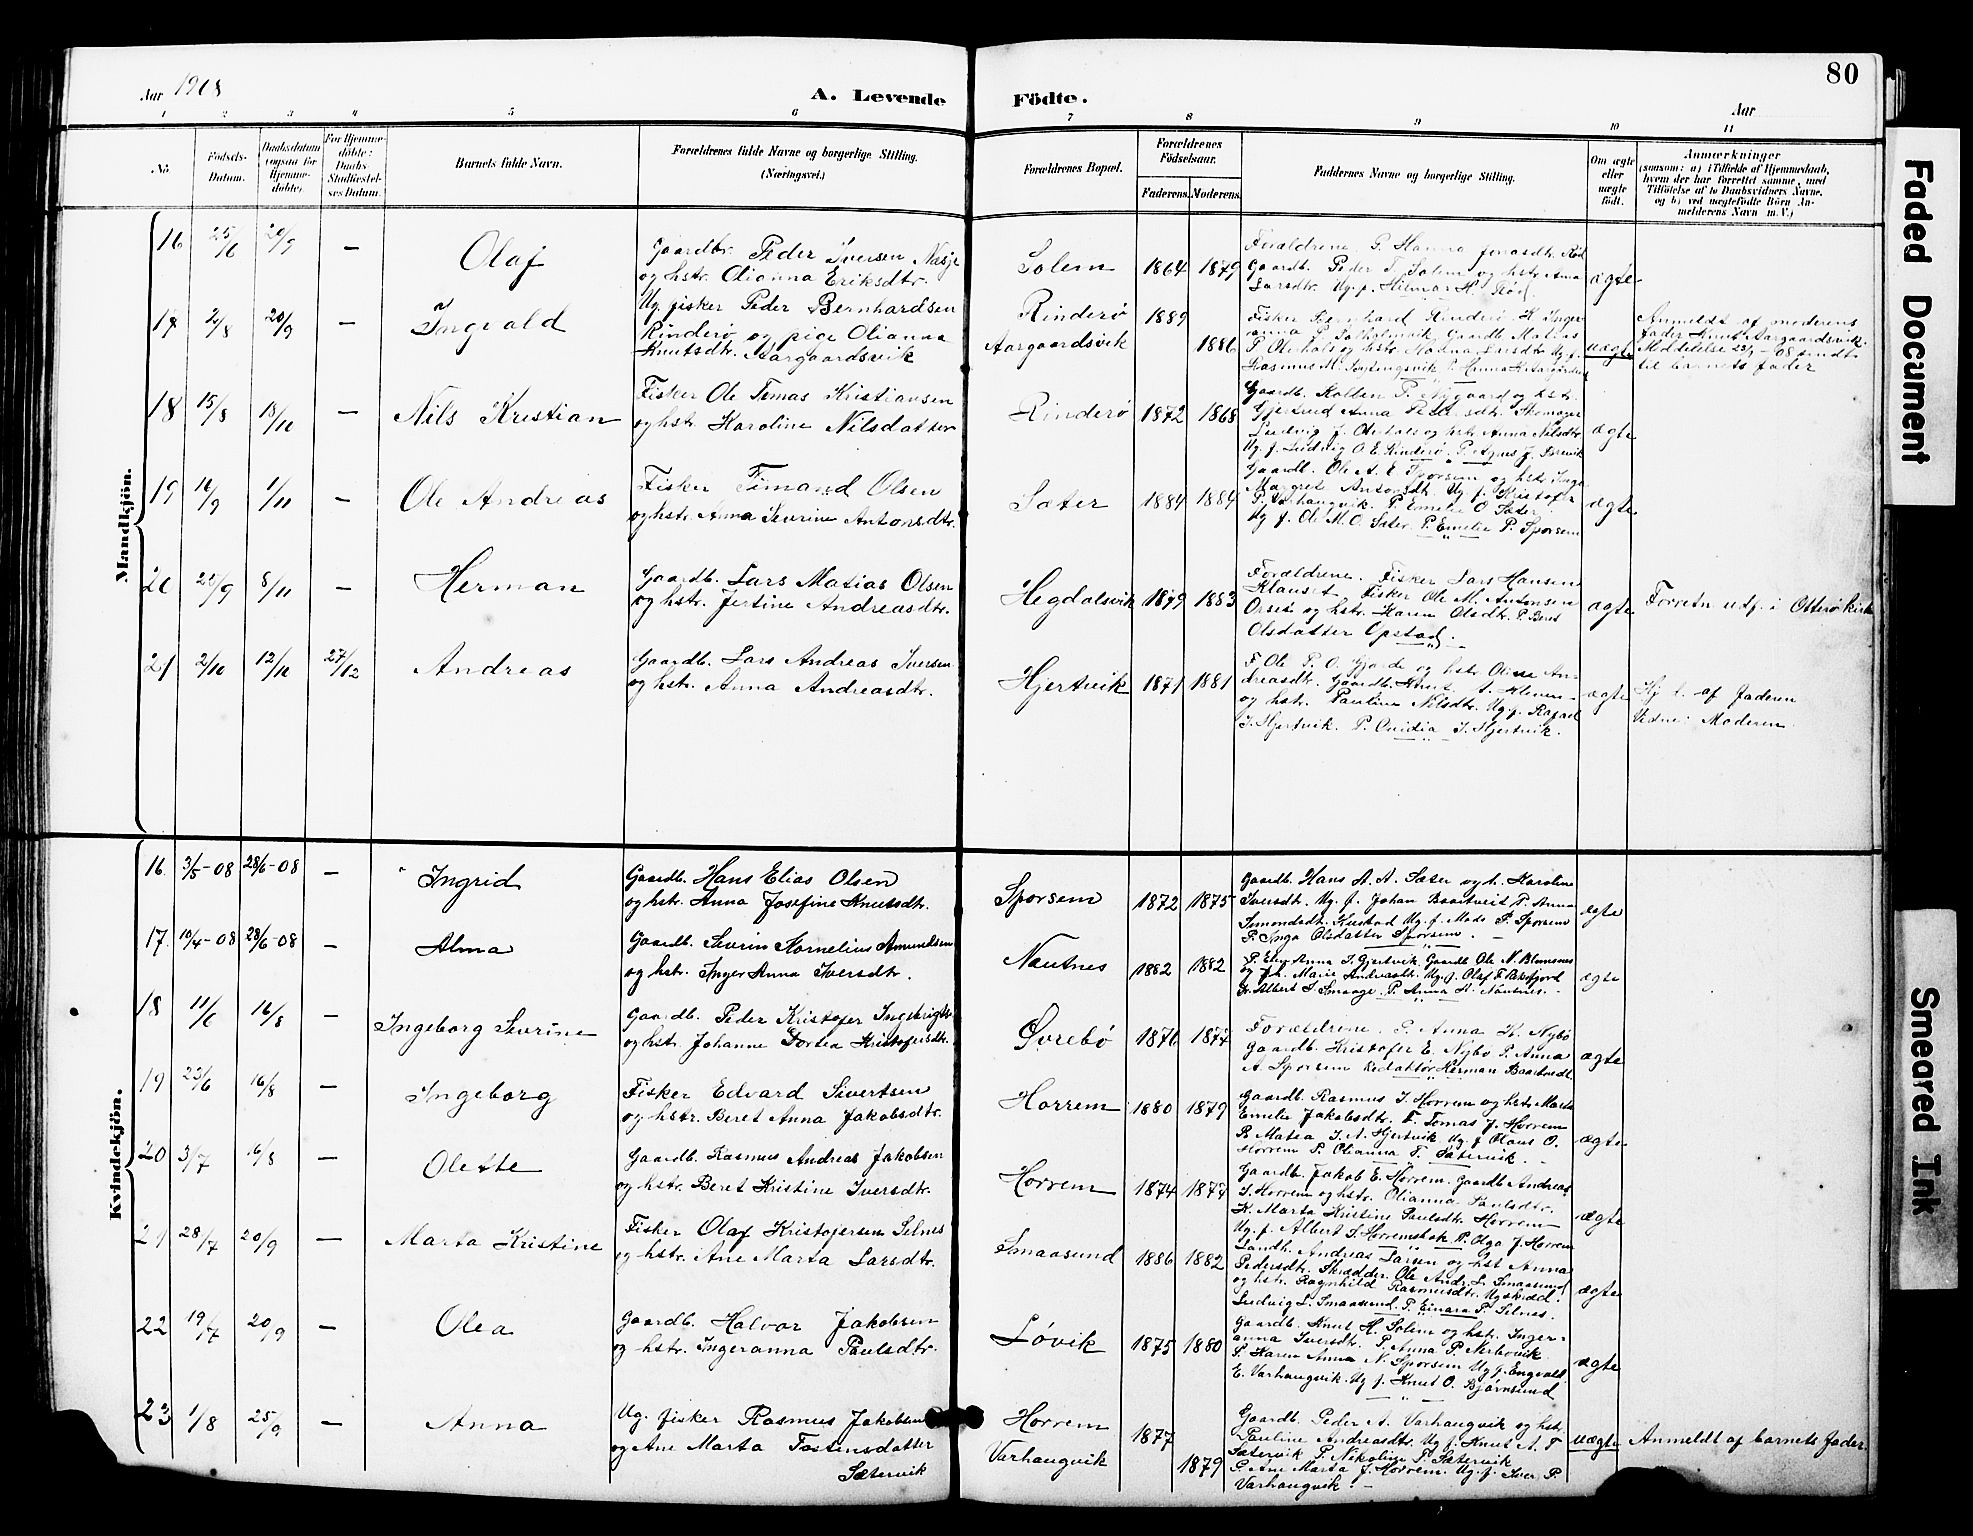 80
Aar 1908
A. Levende Födte.
Aar
1 2 3 4 5 6 7 8 9 10 11
No
Födsels-Datum.
Daabsdatum (ogsaa for Hjemmedöbte).
For Hjemmedöbte: Daabs Stadfæstelses Datum.
Barnets fulde Navn.
Forældrenes fulde Navne og borgerlige Stilling. (Næringsvei.)
Forældrenes Bopæl.
Forældrenes Födselsaar.
Faderens. Moderens.
Faddernes Navne og borgerlige Stilling.
Om ægte eller uægte födt.
Anmærkninger
(saasom: a) i Tilfælde af Hjemmedaab, hvem der har forrettet samme, med Tilföielse af to Daabsvidners Navne, og b) ved uægtefödte Börn Anmelderens Navn m. V.)
Mandkjön.
16 25/6 20/9 — Olaf
Gaardbr. Peder Iversen Nasje
og hstr. Olianna Eriksdtr.
Solem 1864 1879
Forældrene, P. Hanna Jonasdtr. Rød
Gaardb. Peder T. Solem og hstr. Ana
Larsdtr. Ug. f. Hilmar H. Rød.
ægte
17 2/8 20/9 — Ingvald
Ug. fisker Peder Bernhardsen
Rinderø og pige Olianna
Knutsdtr. Aargaardsvik
Rinderø 1889
Aargaardsvik 1886
Fisker Bernhard Rinderø
uægte
Anmeldt af moderens
fader Knut Aargaardsvik.
Meddelelse 23/9 - 08 sendt
til barnets fader
18 15/8 18/10 — Nils Kristian
Fisker Ole Tomas Kristiansen
og hstr. Karoline Nilsdatter
Rinderø 1872 1868
Ludvig J. Oterhals og hstr. Anna Nilsdtr.
Ug. f. Ludvig O. E. Rinderø.
ægte
19 16/9 1/11 — Ole Andreas
Fisker Timand Olsen
og hstr. Anna Sevrine Antonsdtr.
Sæter 1884 1884
Gaardb. Ole A. E. Sporsem og hstr. Inga
Margret Antonsdtr. Ug. f. Kristofer
P. Varhaugvik. P. Emelie O. Sæter.
Ug. f. Ole M. O. Sæter. P. Emelie P. Sporsem
ægte
20 22/9 8/11 — Herman
Gaardb. Lars Matias Olsen
og hstr. Jertine Andreasdtr.
Hegdalsvik 1879 1883
Forældrene. Fisker Lars Hansen
Klauset Fisker Ole M. Antonsen
Orset og hstr. Karen Olsdtr. P. Beret
Olsdatter Opstad.
ægte
Forretn. udf. i Otterø kirke
21 2/10 12/10 27/12 Andreas
Gaardb. Lars Andreas Iversen
og hstr. Anna Andreasdtr.
Hjertvik 1871 1881
F. Ole P. O. Gjerde og hstr. Oline An-
dreasdtr. Gaardb. Knut
og hstr. Pauline Nilsdtr. Ug. f. Rafael
I. Hjertvik. P. Ovidia I. Hjertvik.
ægte
Hj. d. af faderen
Vidne: Moderen
Kvindekjön.
16. 3/5-08 28/6-08 — Ingrid
Gaardb. Hans Elias Olsen
og hstr. Anna Josefine Knutsdtr.
Sporsem 1872 1875
Gaardb. Hans A. A. Sæter og h. Karoline
Iversdtr. Ug. f. Johan Baartveit P. Anna
Simondsdt. Kustad Ug. f. Mads P. Sporsem
P. Inga Olsdatter Sporsem.
ægte
17. 10/4-08 28/6-08 — Alma
Gaardb. Sevrin Kornelius Amundsen
og hstr. Inger Anna Iversdtr.
Nautnes 1882 1882
P. Elen Anna I. Gjertvik. Gaardb. Ole N. Blomsnes
K. Albert S. Smaage. P. Anna A. Nautnes.
ægte
18 11/6 16/8 — Ingeborg Sevrine
Gaardb. Peder Kristofer Ingebrigts.
og hstr. Johanne Dortea Kristofersdtr.
Øvrebø 1876 1877
Forældrene. P. Anna K. Nybø
Gaardb. Kristofer E. Nybø P. Anna
A. Sporsem Redaktør Herman Baartvedt.
ægte
19 23/6 16/8 — Ingeborg
Fisker Edvard Sivertsen
og hstr. Beret Anna Jakobsdtr.
Horrem 1880 1879
Gaardb. Rasmus I. Horrem og hstr. Marta
Emelie Jakobsdtr. F. Tomas J. Horrem
P. Matea I. A. Hjertvik Ug. f. Olaus O.
Horrem P. Olianna T. Sætervik.
ægte
20 3/7 16/8 — Olette
Gaardb. Rasmus Andreas Jakobsen
og hstr. Beret Kristine Iversdtr.
Horrem 1874 1877
Gaardb. Jakob E. Horrem. Gaardb. Andreas
I. Horrem og hstr. Olianna Paulsdtr.
K. Marta Kristine Paulsdtr. Horrem
Ug. f. Albert I. Horremsbak P. Olga J. Horrem
ægte
21 28/7 20/9 — Marta Kristine
Fisker Olaf Kristofersen Selnes
og hstr. Ane Marta Larsdtr.
Smaasund 1886 1882
Landh. Andreas Larsen og hst Anna
Pedersdtr. Skrædder Ole Andr. L. Smaasund
og hstr. Ragnhild Rasmusdtr. Ug skræd.
Ludvig L. Smaasund. P. Einara P. Selnes.
ægte
22 19/7 20/9 — Olea
Gaardb. Halvor Jakobsen
og hstr. Ingeranna Paulsdtr.
Løvik 1875 1880
Gaardb. Knut H. Solem og hstr. Inger-
anna Iversdtr. P. Anna P. Nerlervik
P. Karen Anna N. Sporsem Ug. f. Engvald
E. Varhaugvik. Ug. f. Knut O. Bjørnsund
ægte
23 1/8 25/9 — Anna
Ug. fisker Rasmus Jakobsen
og Ane Marta Tostensdatter
Sætervik
Horrem 1877
Varhaugvik 1879
Gaardb. Peder A. Varhaugvik og hstr.
Pauline Andreasdtr. Ug. f. Knut A. T.
Sætervik P. Nikoline P. Sætervik
P. Ane Marta J. Horrem. Ug. f. Iver P.
Varhaugvik.
uægte
Anmeldt af barnets fader.
Faded Document
Smeared Ink